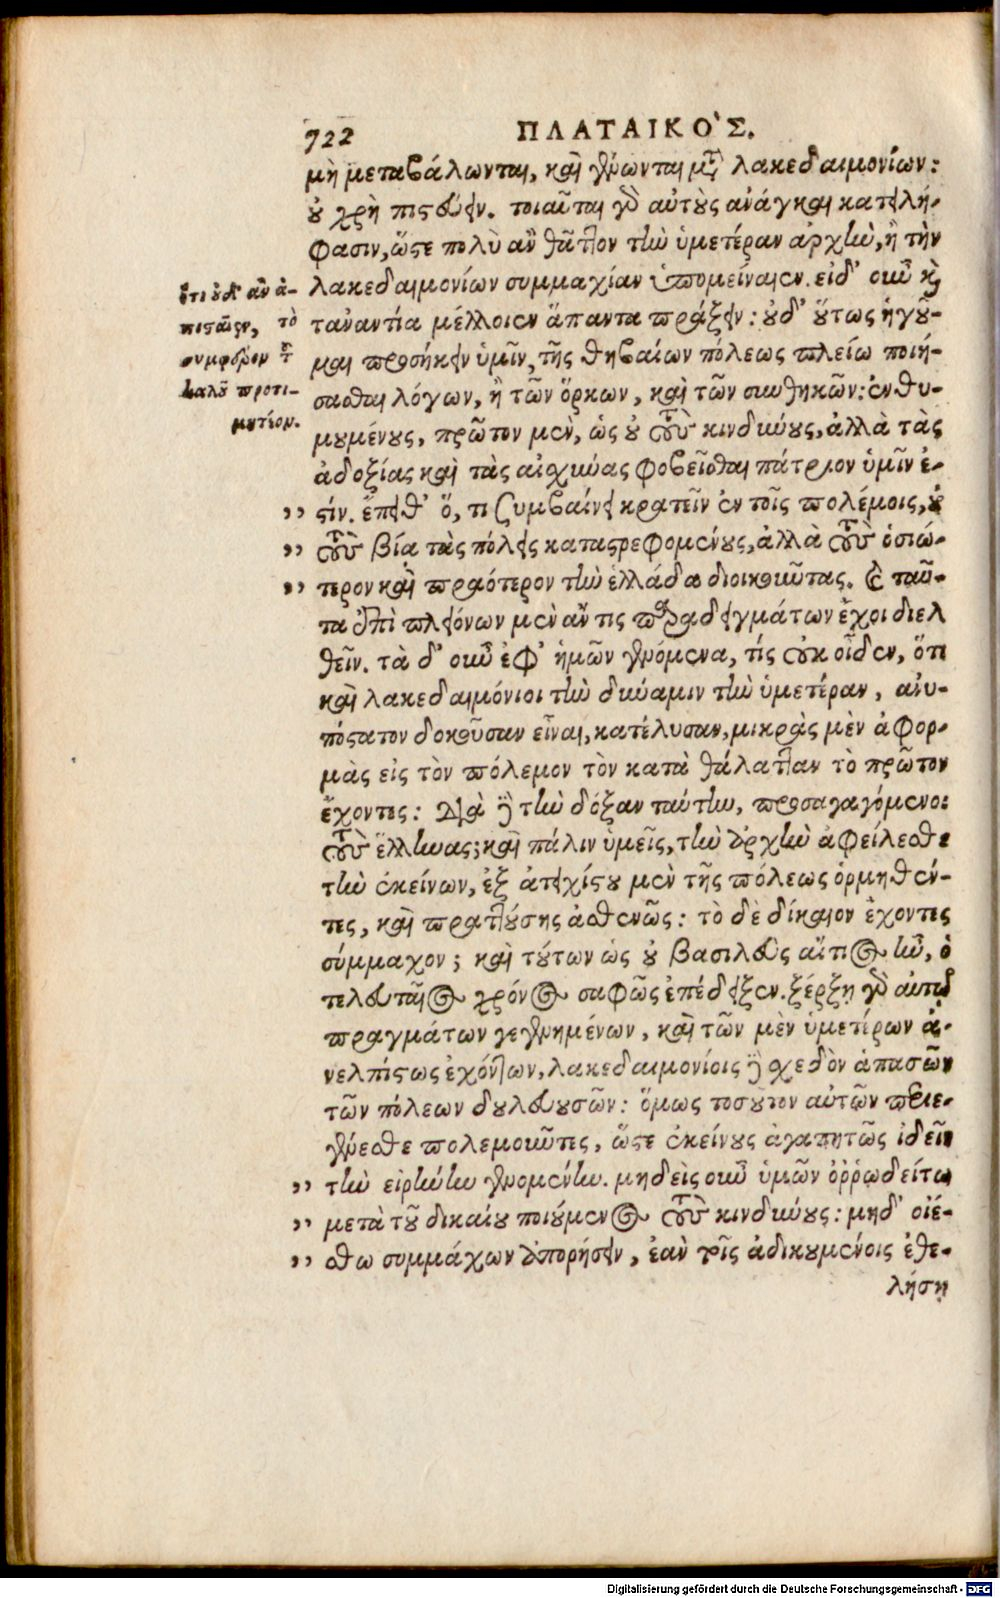 722 ΠΛΑΤΑΙΚΟ`Σ.
μὴ μεταβάλωνται, καὶ γένωνται μετὰ λακεδαιμονίων:
οὐ χρὴ πιστεύειν. τοιαῦται γὸ αὐτοὺς ἀνάγκαι κατειλή-
φασιν, ὥστε πολὺ ἂν θᾶττον τὴν ὑμετέραν ἀρχὴν, ἢ τὴν
λακεδαιμονίων συμμαχίαν ὑπομείναιεν. εἰ δ' οὖν καὶ
τἀναντία μέλλοιεν ἅπαντα πράξειν: οὐδ' οὕτως ἡγοῦ-
μαι προσήκειν ὑμῖν, τῆς θηβαίων πόλεως πλείω ποιή-
σασθαι λόγων, ἢ τῶν ὅρκων, καὶ τῶν συνθηκῶν: ἐνθυ-
μουμένους, πρῶτον μὲν, ὡς οὐ τοὺς κινδύνους, ἀλλὰ τὰς
ἀδοξίας καὶ τὰς αἰσχύνας φοβεῖσθαι πάτριον ὑμῖν ἐ-
στίν. ἔπειθ' ὅ, τι ξυμβαίνει κρατεῖν ἐν τοῖς πολέμοις, οὐ
τοὺς βίᾳ τὰς πόλεις καταστρεφομένους, ἀλλὰ τοὺς ὁσιώ-
τερον καὶ πραότερον τὴν ἑλλάδα διοικοῦντας. Καὶ ταῦ-
τα ἐπὶ πλειόνων μὲν ἄν τις παραδειγμάτων ἔχοι διελ
θεῖν. τὰ δ' οὖν ἐφ' ἡμῶν γενόμενα, τίς οὐκ οἶδεν, ὅτι
καὶ λακεδαιμόνιοι τὴν δύναμιν τὴν ὑμετέραν, ἀνυ-
πόστατον δοκοῦσαν εἶναι, κατέλυσαν, μικρὰς μὲν ἀφορ-
μὰς εἰς τὸν πόλεμον τὸν κατὰ θάλατταν τὸ πρῶτον
ἔχοντες: διὰ δὲ τὴν δόξαν ταύτην, προσαγαγόμενοι
τοὺς ἕλληνας; καὶ πάλιν ὑμεῖς, τὴν ἀρχὴν ἀφείλεσθε
τὴν ἐκείνων, ἐξ ἀτειχίστου μὲν τῆς πόλεως ὁρμηθέν-
τες, καὶ πραττούσης ἀσθενῶς: τὸ δὲ δίκαιον ἔχοντες
σύμμαχον; καὶ τούτων ὡς οὐ βασιλεὺς αἴτιος ἦν, ὁ
τελευταῖος χρόνος σαφῶς ἐπέδειξεν. ξέρξῃ γὸ αὐτῷ
πραγμάτων γεγενημένων, καὶ τῶν μὲν ὑμετέρων ἀ-
νελπίστως ἐχόντων, λακεδαιμονίοις δὲ σχεδὸν ἁπασῶν
τῶν πόλεων δουλευουσῶν: ὅμως τοσοῦτον αὐτῶν περιε-
γένεσθε πολεμοῦντες, ὥστε ἐκείνους ἀγαπητῶς ἰδεῖν
τὴν εἰρήνην γενομένην. μηδεὶς οὖν ὑμῶν ὀρρωδείτω
μετὰ τοῦ δικαίου ποιούμενος τοὺς κινδύνους: μηδ' οἰέ-
σθω συμμάχων ἀπορήσειν, ἐὰν τοῖς ἀδικουμένοις ἐθε-
λήσῃ
ὅτι οὐδ' ἂν ἀ-
πισταῖεν, τὸ
συμφέρον τοῦ
καλοῦ προτι-
μητέον.
Digitalisierung gefördert durch die Deutsche Forschungsgemeinschaft - DFG